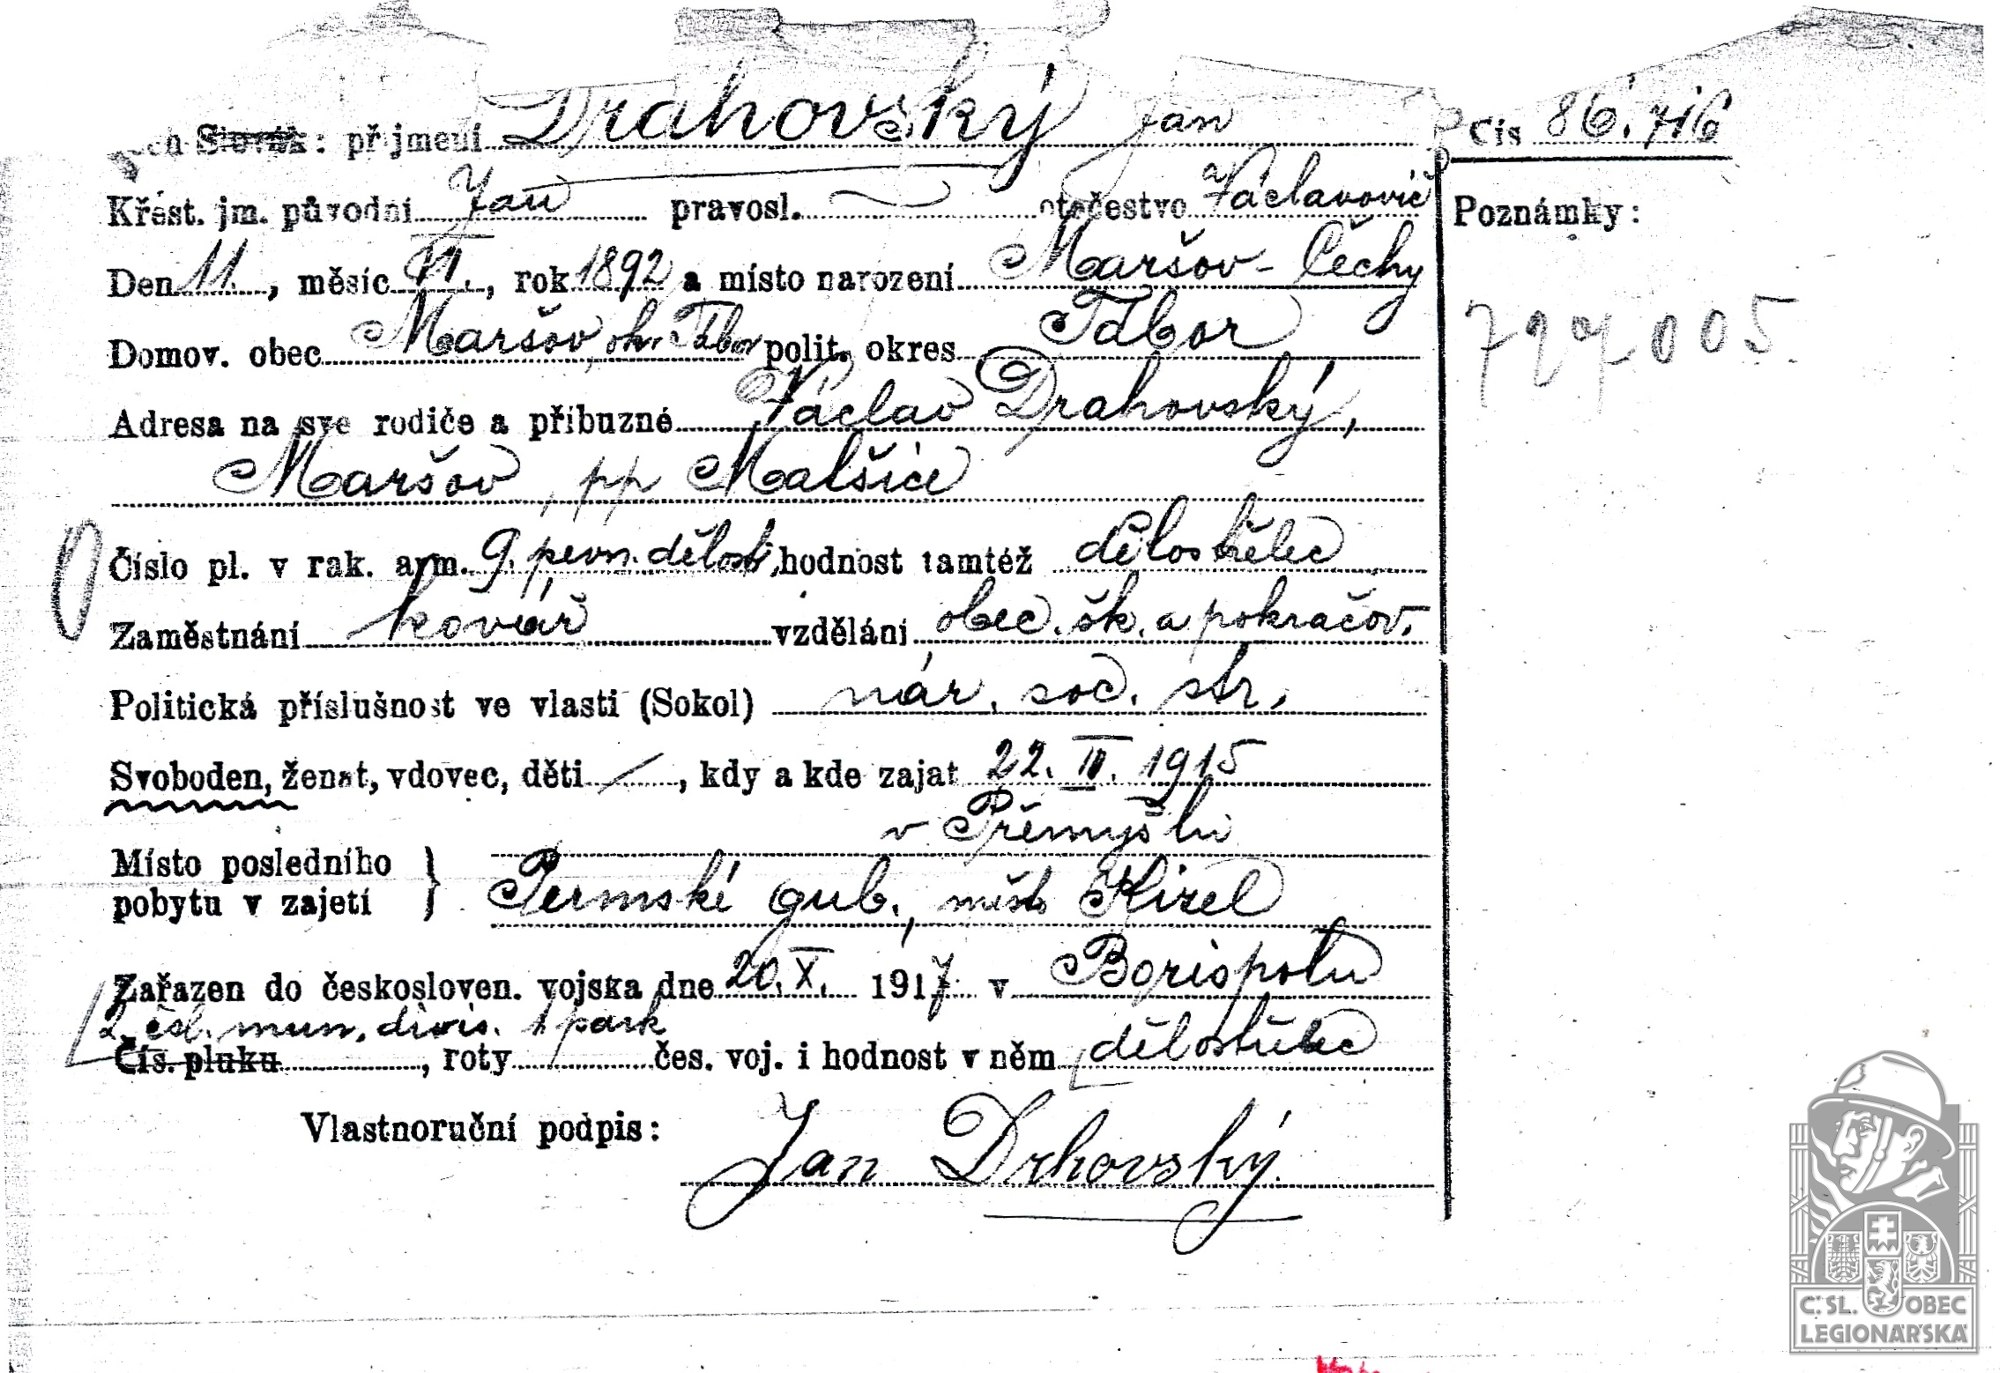 Slovák: příjmení Drahovský Jan Čís 86.716
Křest. jm. původní Jan pravosl. otečestvo Václavovič Poznámky:
Den 11., měsíc VI., rok 1892 a místo narození Maršov - Čechy
727005.
Domov. obec Maršov, ok. Tábor polit. okres Tábor
Adresa na své rodiče a příbuzné Václav Drahovský,
Maršov, pp Malšice
Číslo pl. v rak. arm. 9. pevn. dělost. hodnost tamtéž dělostřelec
Zaměstnání kovář vzdělání obec. šk. a pokračov.
Politická příslušnost ve vlasti (Sokol) nár. soc. str.
Svoboden, ženat, vdovec, děti /, kdy a kde zajat 22. III. 1915
v Přemyšlu
Místo posledního
pobytu v zajetí } Permské gub., město Kizel
Zařazen do českosloven. vojska dne 20. X. 1917 v Borispolu
2. čsl. mun. divis. 1 park
Čís. pluku, roty čes. voj. i hodnost v něm dělostřelec
Vlastnoruční podpis:
Jan Drhovský.
Č.SL. OBEC
LEGIONÁŘSKÁ